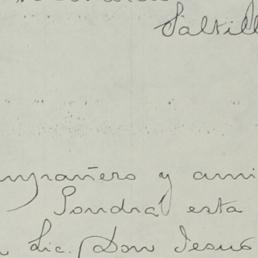 Saltill
mpañero y ami
Pondrá esta
Lic. Don Jesús